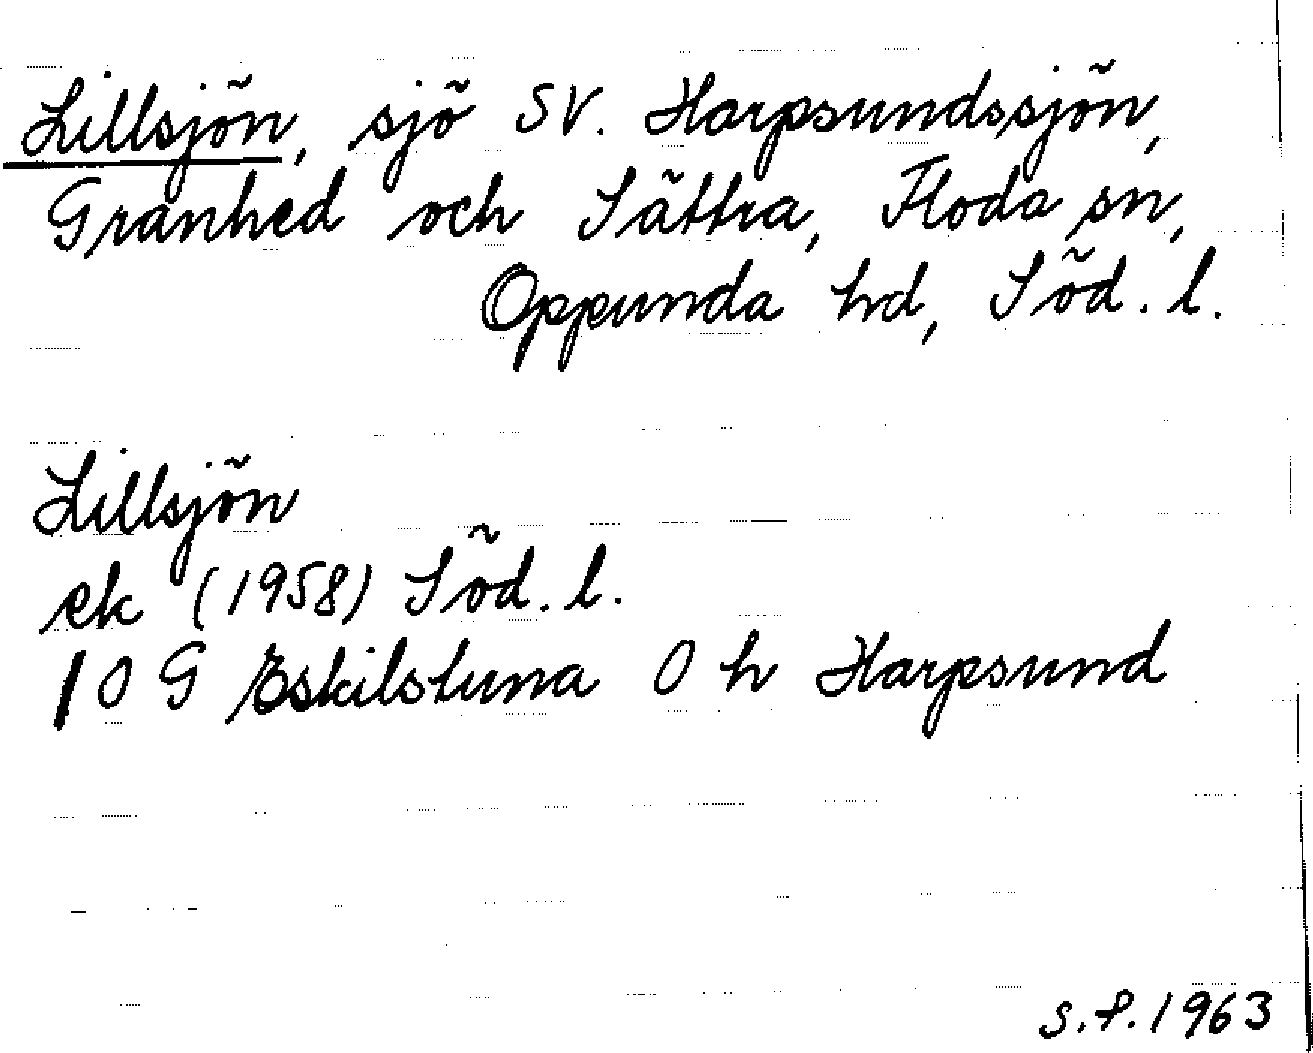 Lillsjön, sjö SV. Harpsundssjön,
Granhed och Sättra, Floda sn,
Oppunda hd, Söd. l.
Lillsjön
ek (1958) Söd. l.
10 G Eskilstuna 0 h Harpsund
S.P. 1963